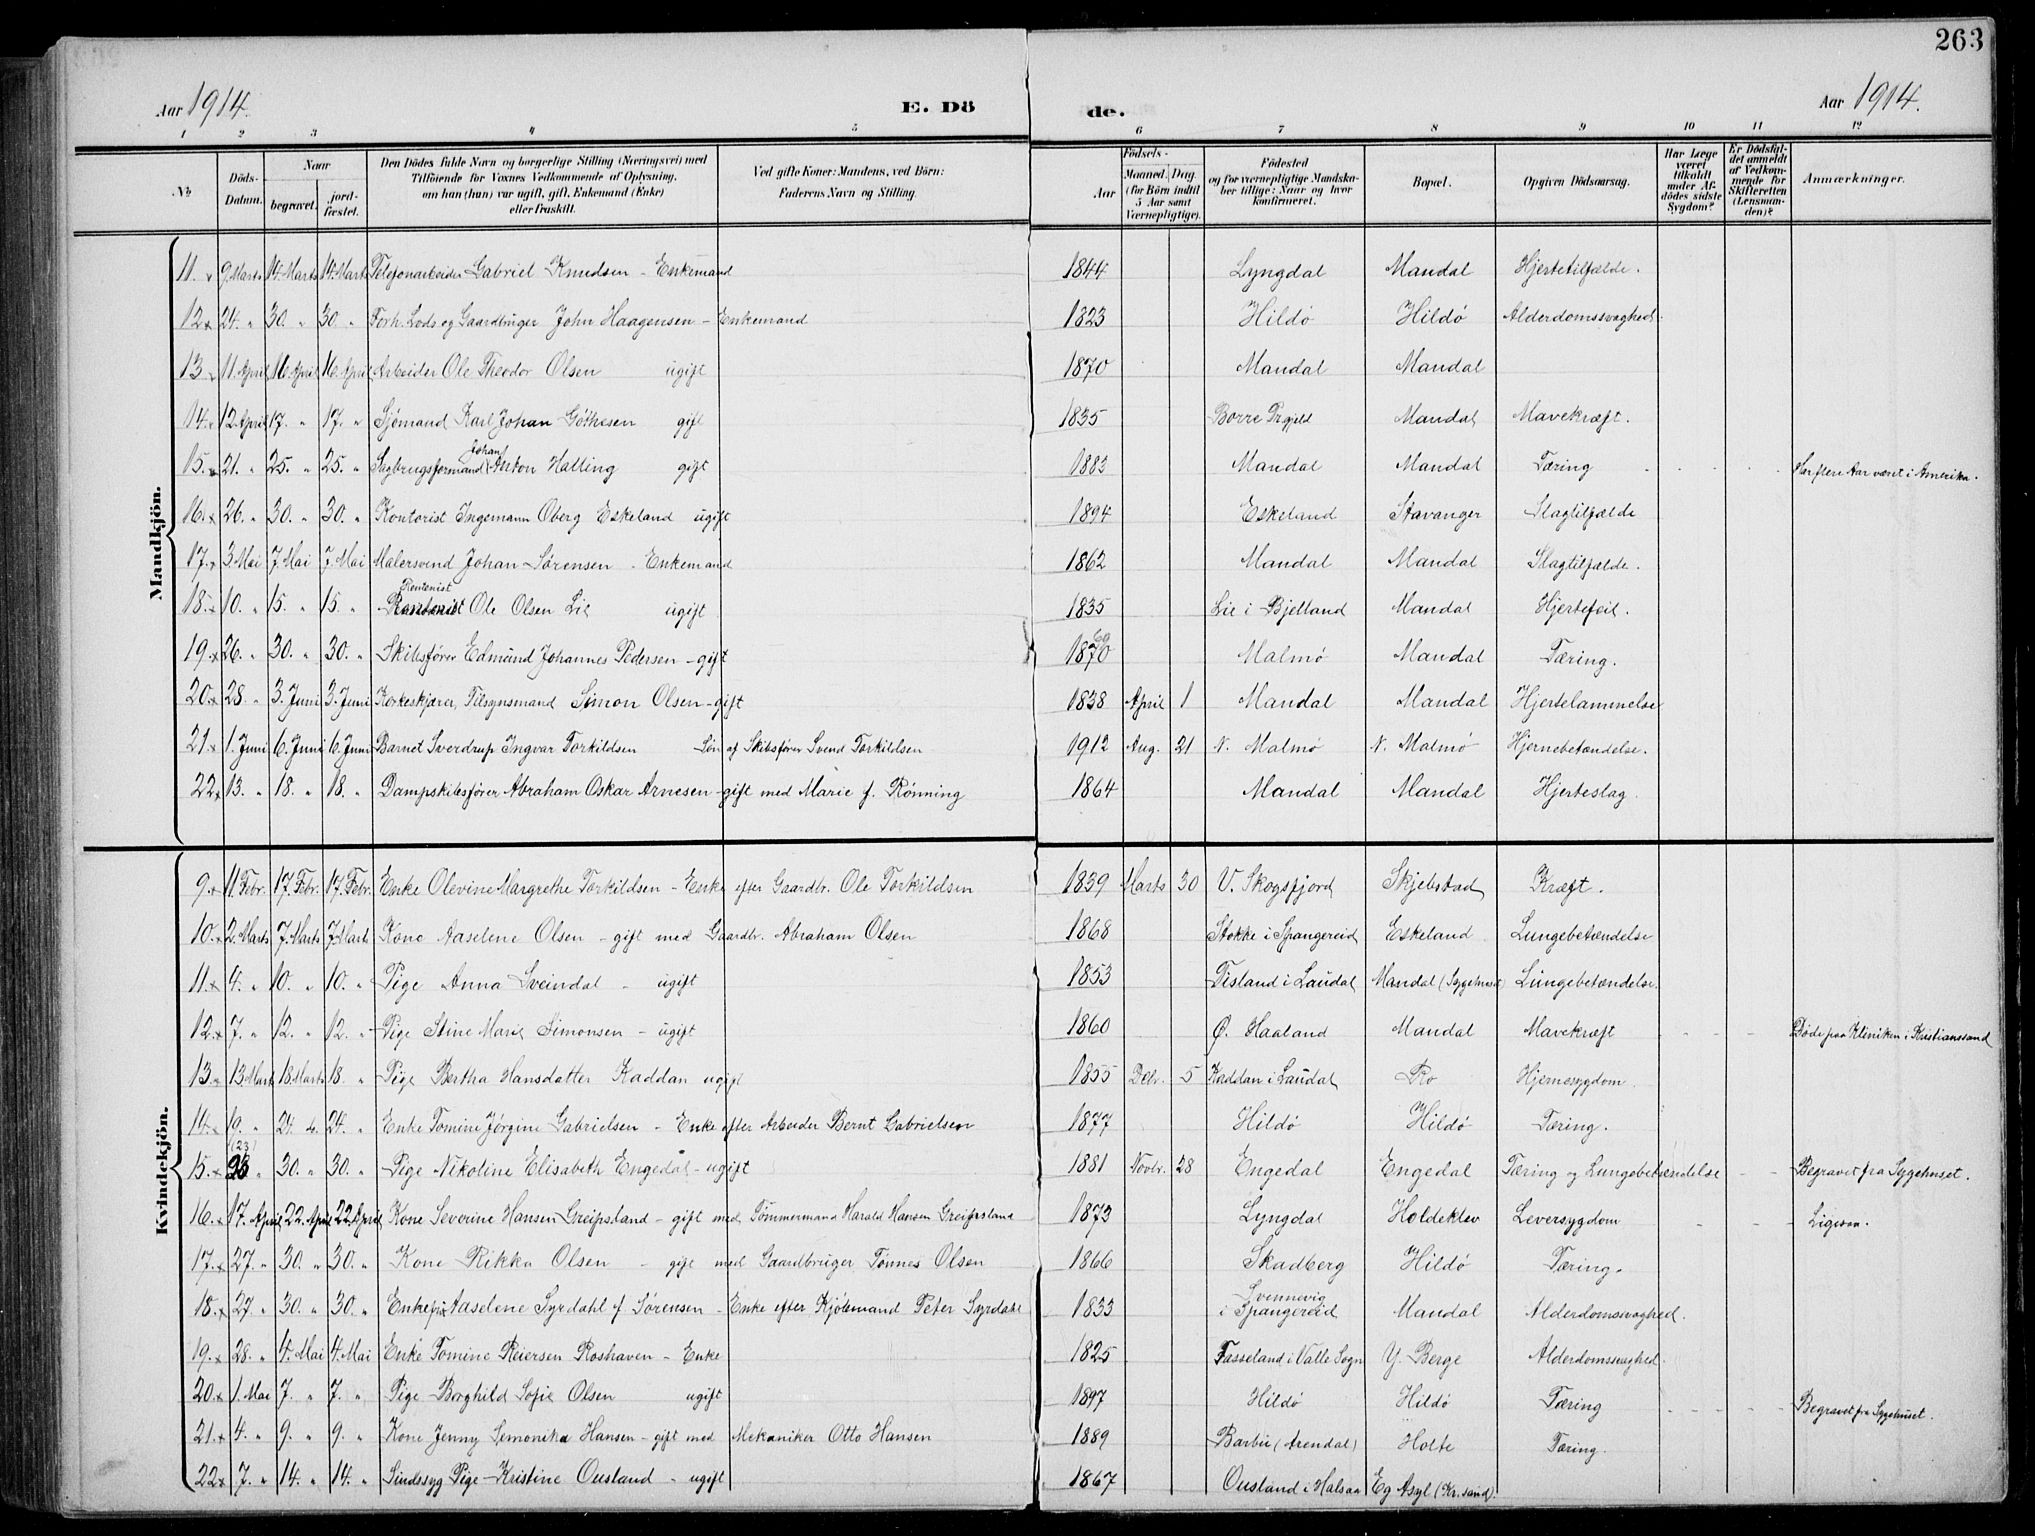 263
Aar 1914.
E. Dö
de.
Aar 1914.
1 2 3 4 5 6 7 8 9 10 11 12
№
Döds-Datum.
Naar
begravet. jord-fæstet.
Den Dödes fulde Navn og borgerlige Stilling (Næringsvei) med
Tilföiende for Voxnes Vedkommende af Oplysning,
om han (hun) var ugift, gift, Enkemand (Enke)
eller fraskilt.
Ved gifte Koner: Mandens, ved Börn:
Faderens Navn og Stilling.
Födsels-
Aar
Maaned. Dag.
(for Börn indtil
5 Aar samt
Værnepligtige).
Födested
og for værnepligtige Mandska-
ber tillige: Naar og hvor
konfirmeret.
Bopæl.
Opgiven Dödsaarsag.
Har Læge
været
tilkaldt
under Af-
dödes sidste
Sygdom?
Er Dödsfal-
det anmeldt
af Vedkom-
mende for
Skifteretten
(Lensman-
den)?
Anmærkninger.
Mandkjön.
11. 9. Marts 14. Marts 14. Marts Telefonarbeider Gabriel Knudsen - Enkemand 1844 Lyngdal Mandal Hjertetilfælde.
12 24. " 30. " 30. " Forh. Lods og Gaardbruger John Haagensen - Enkemand 1823 Hildö Hildö Alderdomssvaghed.
13 11. April 16. April 16. April Arbeider Ole Theodor Olsen ugift 1870 Mandal Mandal
14. 12. April 17. " 17. " Sjömand Karl Johan Göthesen gift 1835 Borre Prgjeld Mandal Mavekræft.
15. 21. " 25. " 25. " Sagbrugsformand Johan Anton Halling gift 1883 Mandal Mandal Tæring Har flere Aar været i Amerika.
16. 26. " 30. " 30. " Kontorist Ingemann Oberg Eskeland ugift 1894 Eskeland Stavanger Slagtilfælde
17. 3. Mai 7. Mai 7. Mai Malersvend Johan Sörensen - Enkemand 1862 Mandal Mandal Slagtilfælde.
18. 10. " 15. " 15. " Rentenist Ole Olsen Lie ugift 1835 Lie i Bjelland Mandal Hjertefeil.
19. 26. " 30. " 30. " Skibsfører Edmund Johannes Pedersen - gift 1870 69 Malmö Mandal Tæring.
20. 28. " 3. Juni 3. Juni Korkeskjærer, Tilsynsmand Simon Olsen - gift 1838 April 1 Mandal Mandal Hjertelammelse
21. 1. Juni 6. Juni 6. Juni Barnet Sverdrup Ingvar Torkildsen Sön af Skibsförer Svend Torkildsen 1912 Aug. 21 N. Malmö N. Malmö Hjernebetændelse.
22 13. " 18. " 18. " Dampskibsförer Abraham Oskar Arnesen - gift med Marie f. Rönning 1864 Mandal Mandal Hjerteslag.
Kvindekjön.
9. 11. Febr. 17. Febr. 17. Febr. Enke Olevine Margrethe Torkildsen - Enke efter Gaardbr. Ole Torkildsen 1839 Marts 30 V. Skogsfjord Skjebstad Kræft.
10. 2. Marts 7. Marts 7. Marts Kone Aaselene Olsen - gift med Gaardbr. Abraham Olsen 1868 Stokke i Spangereid Eskeland Lungebetændelse
11. 4. " 10. " 10. " Pige Anna Sveindal - ugift 1853 Tisland i Laudal Mandal (Sygehuset) Lungebetændelse.
12. 7. " 12. " 12. " Pige Stine Marie Simonsen - ugift 1860 Ø. Haaland Mandal Mavekræft Döde paa Kliniken i Kristianssand
13. 13. Marts 18. Marts 18. " Pige Bertha Hansdatter Kaddan ugift 1855 Decbr. 5 Kaddan i Laudal Ro Hjernesygdom.
14. 19. " 24. " 24. " Enke Tomine Jörgine Gabrielsen - Enke efter Arbeider Bernt Gabrielsen 1877 Hildö Hildö Tæring.
15. 23 (23) " 30. " 30. " Pige Nikoline Elisabeth Engedal - ugift 1881 Novbr. 28 Engedal Engedal Tæring og Lungebetændelse Begravet fra Sygehuset.
16. 17. April 22. April 22. April Kone Severine Hansen Greipsland - gift med Tömmermand Harald Hansen Greipsland 1873 Lyngdal Holdeklev Leversygdom Ligesaa.
17. 27. " 30. " 30. " Kone Rikka Olsen - gift med Gaardbruger Tönnes Olsen 1866 Skadberg Hildö Tæring.
18. 27. " 30. " 30. " Enkefru Aaselene Syrdahl f. Sörensen - Enke efter Kjöbmand Peter Syrdahl 1833 Svennevig i Spangereid Mandal Alderdomssvaghed.
19. 28. " 4. Mai 4. Mai Enke Tomine Reiersen Roshaven - Enke 1825 Tasseland i Valle Sogn Y. Berge Alderdomssvaghed.
20. 1. Mai 7. " 7. " Pige Borghild Sofie Olsen ugift 1897 Hildö Hildö Tæring Begravet fra Sygehuset.
21. 4. " 9. " 9. " Kone Jenny Semonika Hansen - gift med Mekaniker Otto Hansen 1889 Barbu (Arendal) Holte Tæring.
22. 7. " 14. " 14. " Sindssyg Pige Kristine Ousland - ugift 1867 Ousland i Halsaa Eg Asyl (Kr.sand).